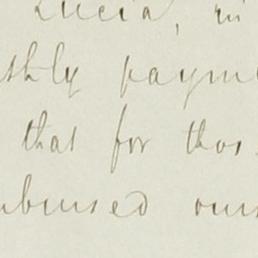 Lucia, in
thly paym
that for thos
mbursed ours